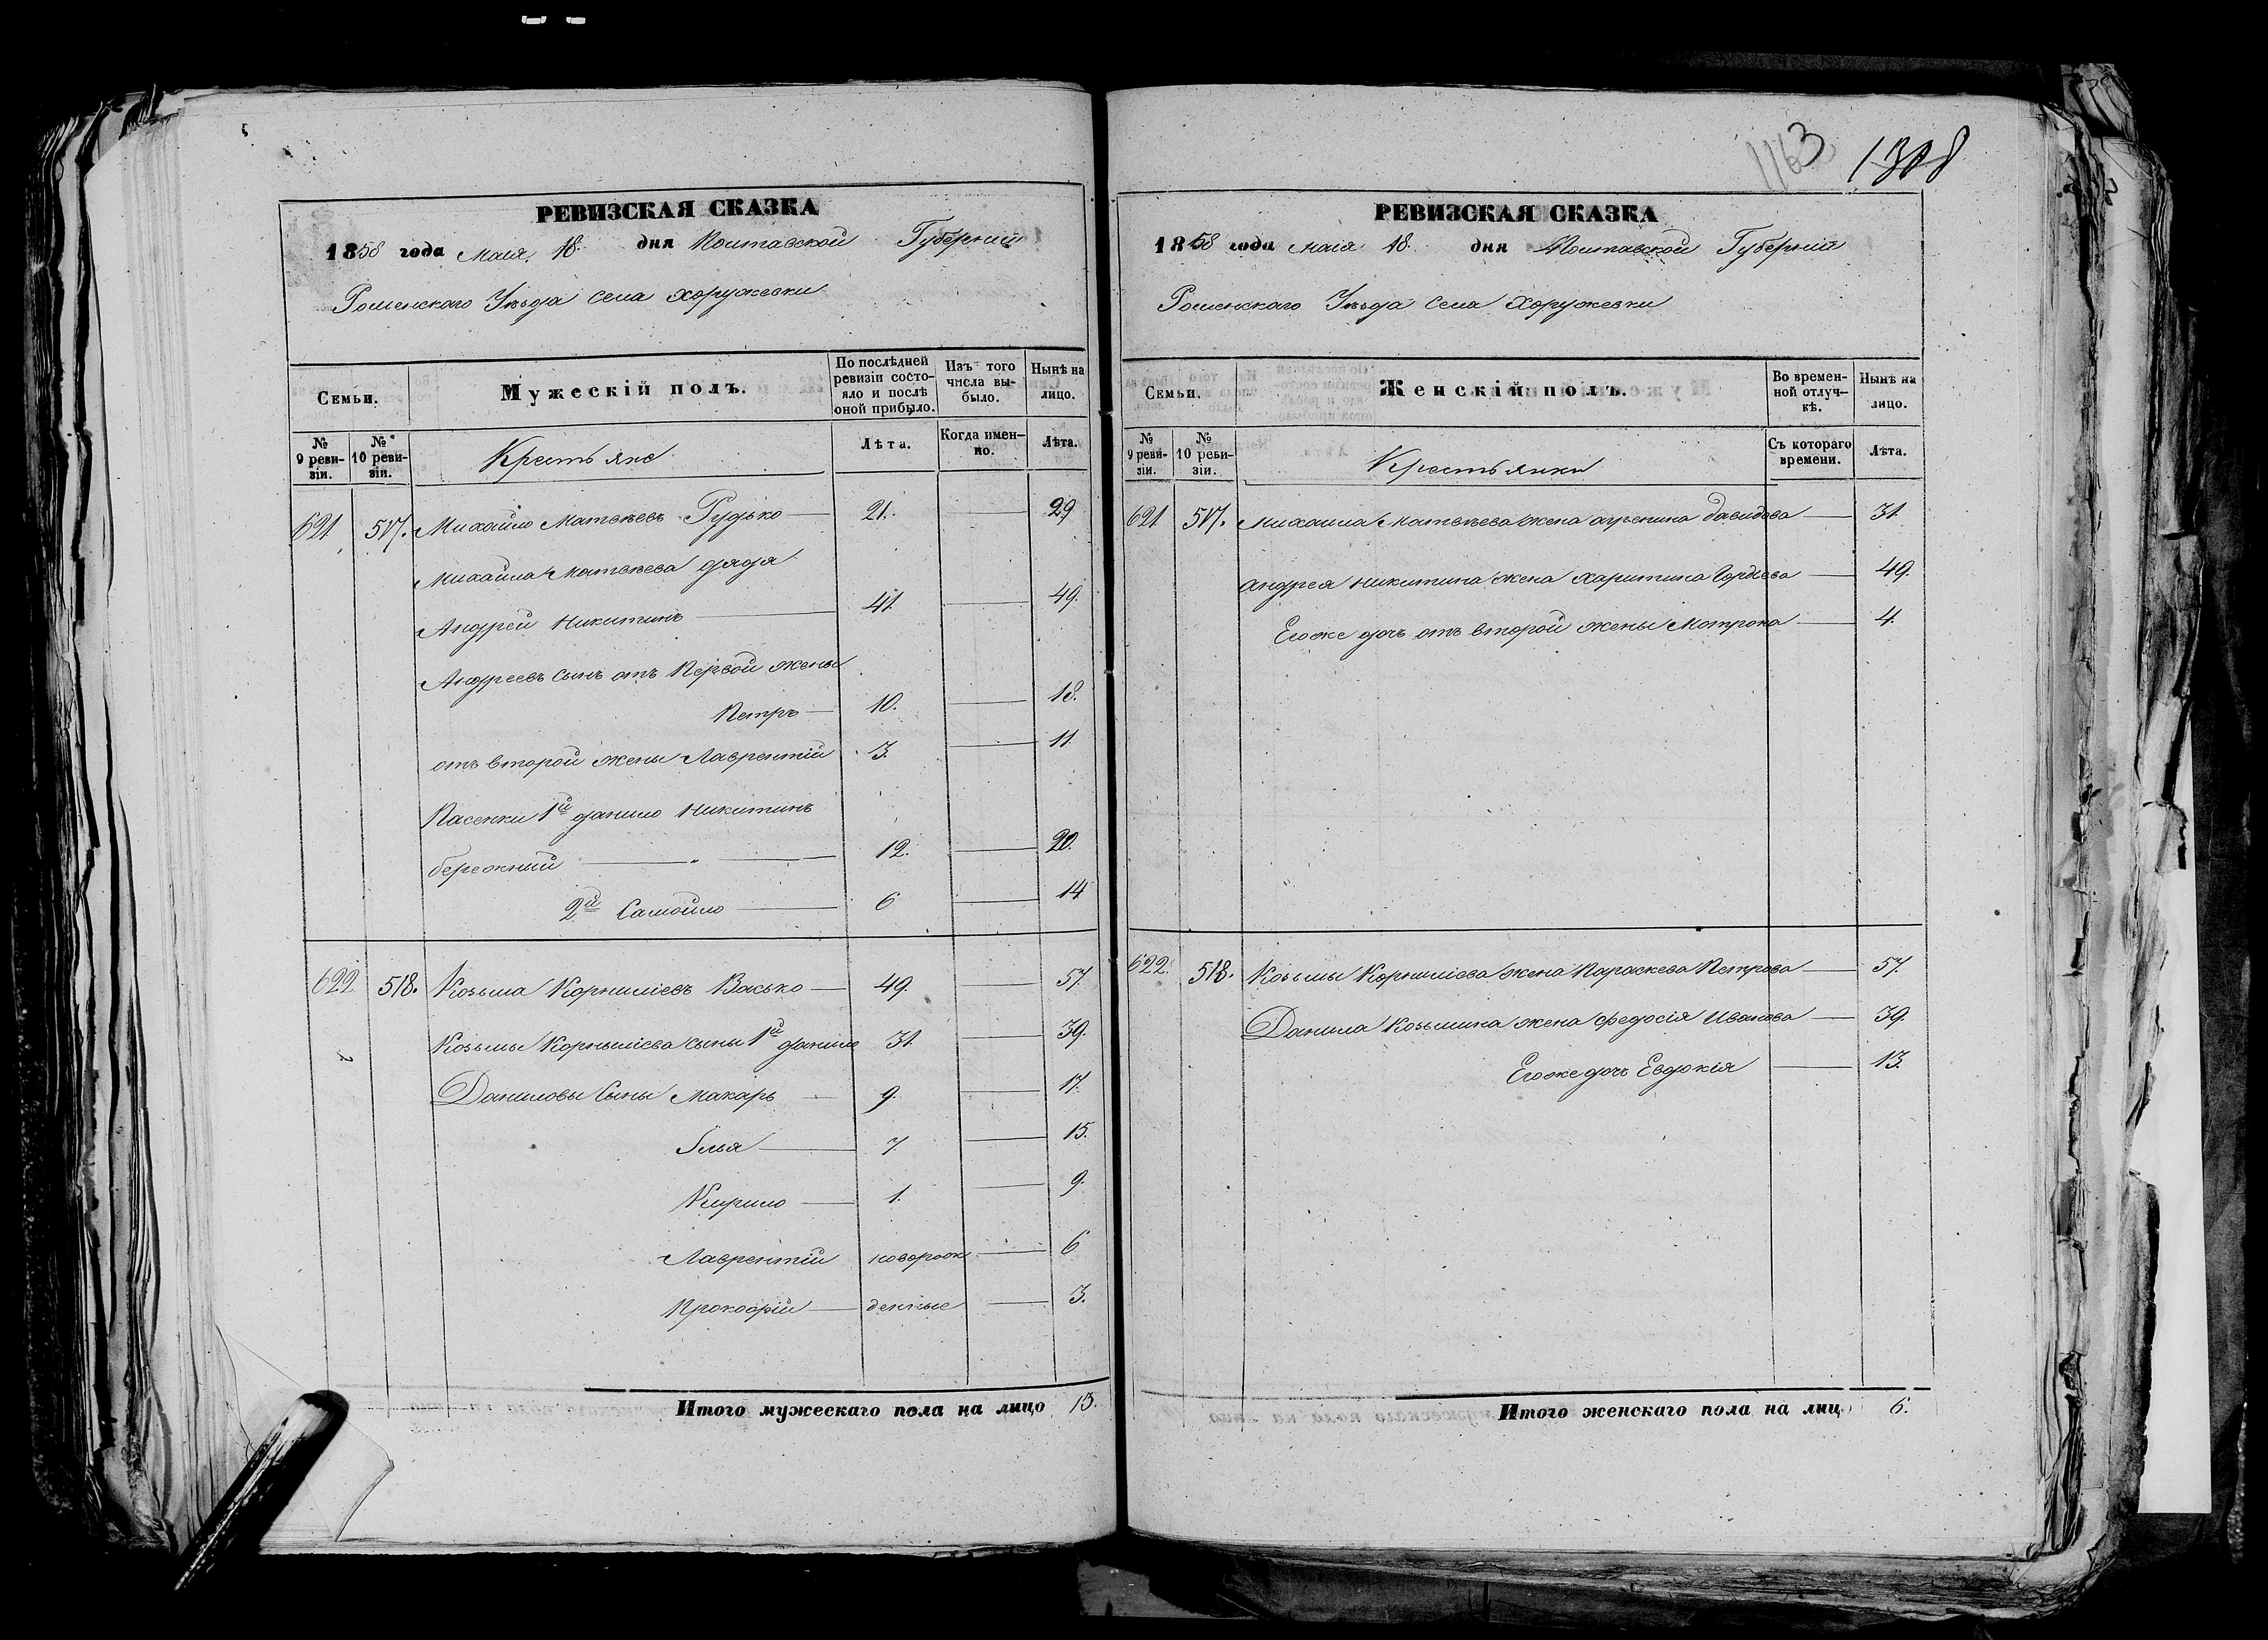 1163 1308
РЕВИЗСКАЯ СКАЗКА
1858 года Маія 18. дня Полтавской Губерніи
Роменскаго Уѣзда Села Хоружевки
Семьи.
Мужескій полъ.
По послѣдней ревизіи состояло и послѣ оной прибыло.
Изъ того числа выбыло.
Нынѣ на лицо.
№ 9 ревизіи.
№ 10 ревизіи.
Крестьяне
Лѣта.
Когда именно.
Лѣта.
621 517. Михайло Матвѣевъ Гудько — 21. — 29
Михайла Матвѣева дядя
Андрей Никитинъ — 41. — 49.
Андреевъ сынъ отъ Первой жены
Петръ — 10. — 18.
отъ второй жены Лаврентій 3. — 11.
Пасенки 1й данило Никитинъ
бережный — " — 12. — 20.
2й Самойло — 6 — 14
622 518. Козьма Корниліевъ Васько — 49. — 57.
Козьмы Корниліева сыны 1й данило 31. — 39.
Даниловы Сыны Макаръ — 9. — 17.
Илья — 7. — 15.
Кирило — 1. — 9.
Лаврентій новорож — 6
Прокофій — денные — 3.
Итого мужескаго пола на лицо 13.
РЕВИЗСКАЯ СКАЗКА
1858 года маія 18. дня Полтавской Губерніи
Роменскаго Уѣзда Села Хоружевки
Семьи.
Женскій полъ.
Во временной отлучкѣ.
Нынѣ на лицо.
№ 9 ревизіи.
№ 10 ревизіи.
Крестьянки
Съ котораго времени.
Лѣта.
621 517. Михайла Матвѣева жена агрепина давидова — 31.
Андрея Никитина жена харитина Гордѣева — 49.
Егоже дочь отъ второй жены Мотрона — 4.
622. 518. Козьмы Корниліева жена Параскева Петрова — 57.
Данила Козьмина жена федосія Иванова — 39.
Егоже дочь Евдокія — 13.
Итого женскаго пола на лиц 6.